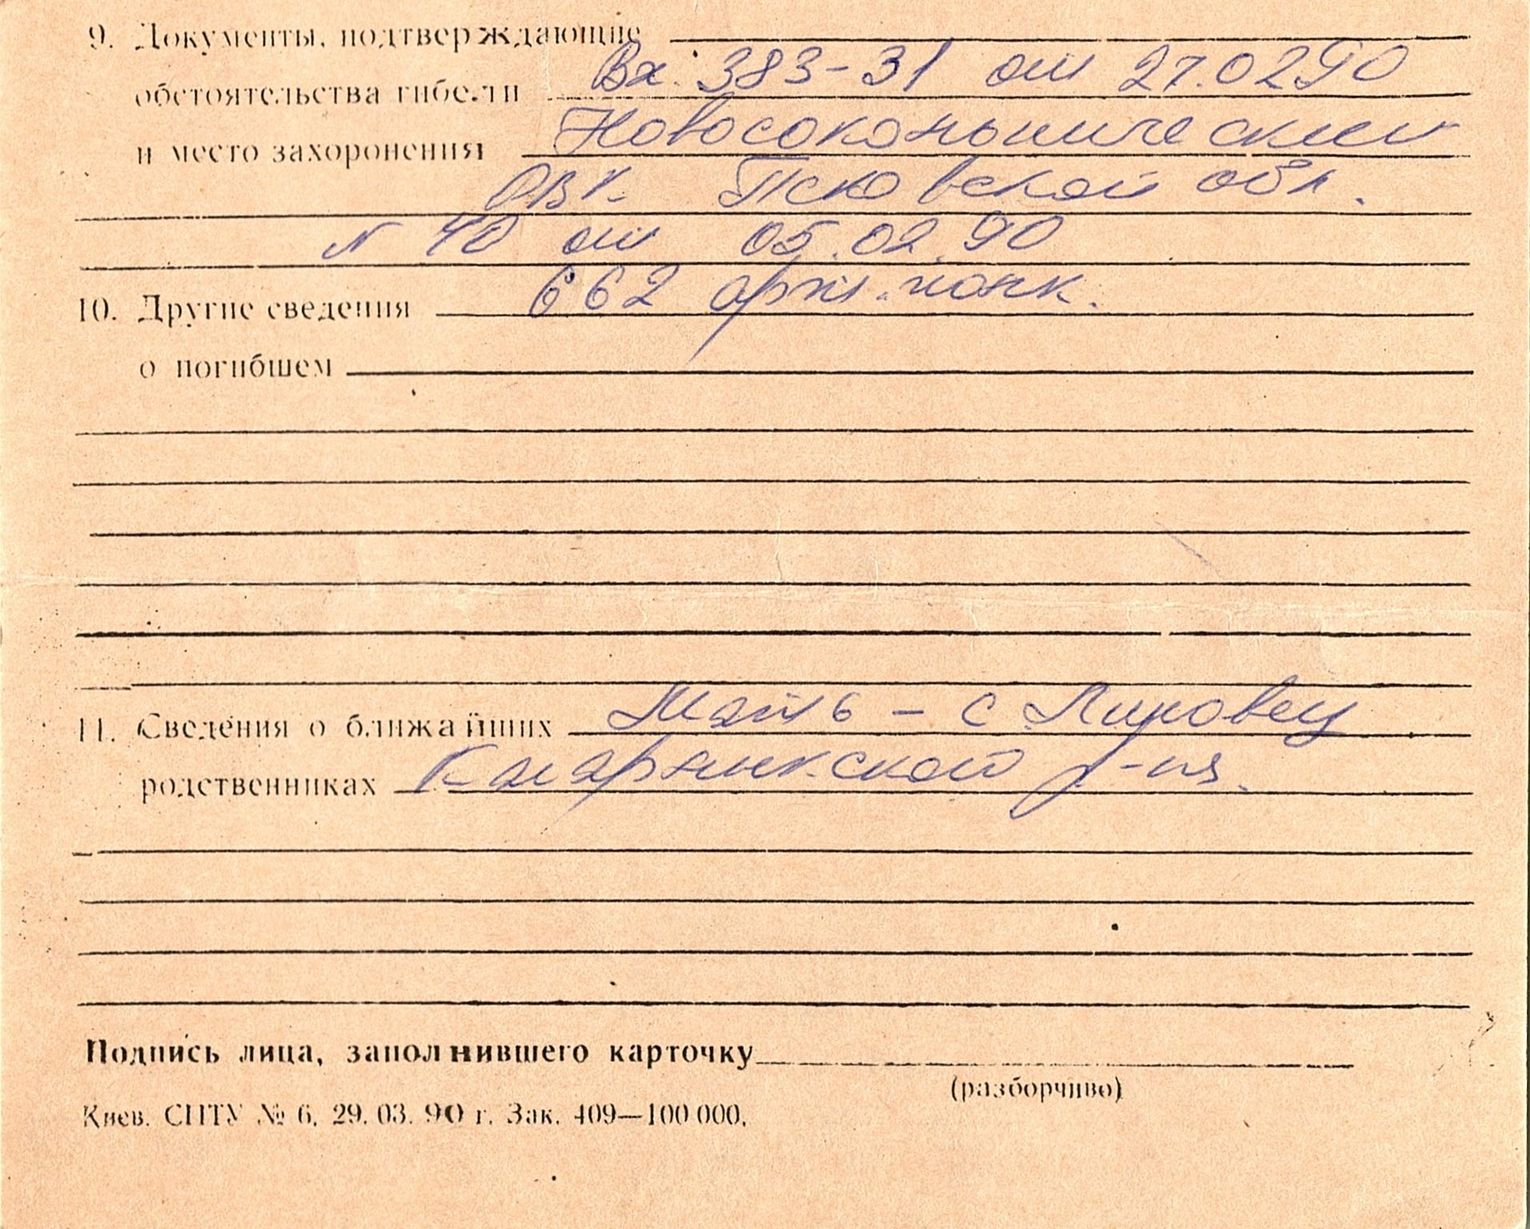 9. Документы, подтверждающие
Вх. 383-31 от 27.02 90
обстоятельства гибели
Новосокольнический
и место захоронения
ОВК Псковской обл.
N 40 от 05.02.90
662 арт. полк.
10. Другие сведения
о погибшем
11. Сведения о ближайших Мать - с
родственниках р-на.
Подпись лица, заполнившего карточку
(разборчиво)
Киев. СПТУ № 6. 29. 03. 90 г. Зак. 409—100 000.